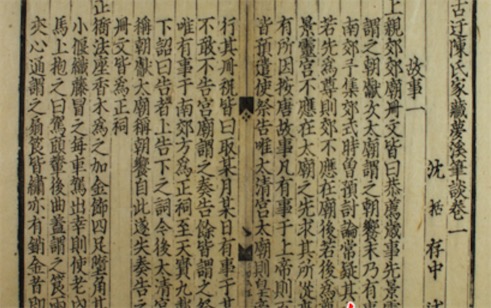 古迂陳氏家藏夢溪筆談卷一
沈括存中
故事一
上親郊郊廟冊文皆曰恭薦歲事先景
謂之朝獻次太廟謂之朝饗末乃有
南郊予集郊式時曽預討論常疑其
若先為尊則郊不應在廟後若後為
景靈宮不應在太廟之先求其所從
有所因按唐故事凡有事于上帝則
皆預遣使祭告唯太清宮太廟則皇
行其冊祝皆曰取某月某日有事于
不敢不告宮廟謂之奏告餘皆謂之祭
唯有事于南郊方為正祠至天寶九載
下詔曰告者上告下之詞今後太清宮
稱朝獻太廟稱朝饗自此遂失奏告之
冊文皆為正祠
正衙法座香木為之加金飾四足墮角其
小偃織藤冒之每車駕出幸則使老內
馬上抱之曰駕頭輦後曲蓋謂之筤兩
夾心通謂之扇筤皆繡亦有銷金者即